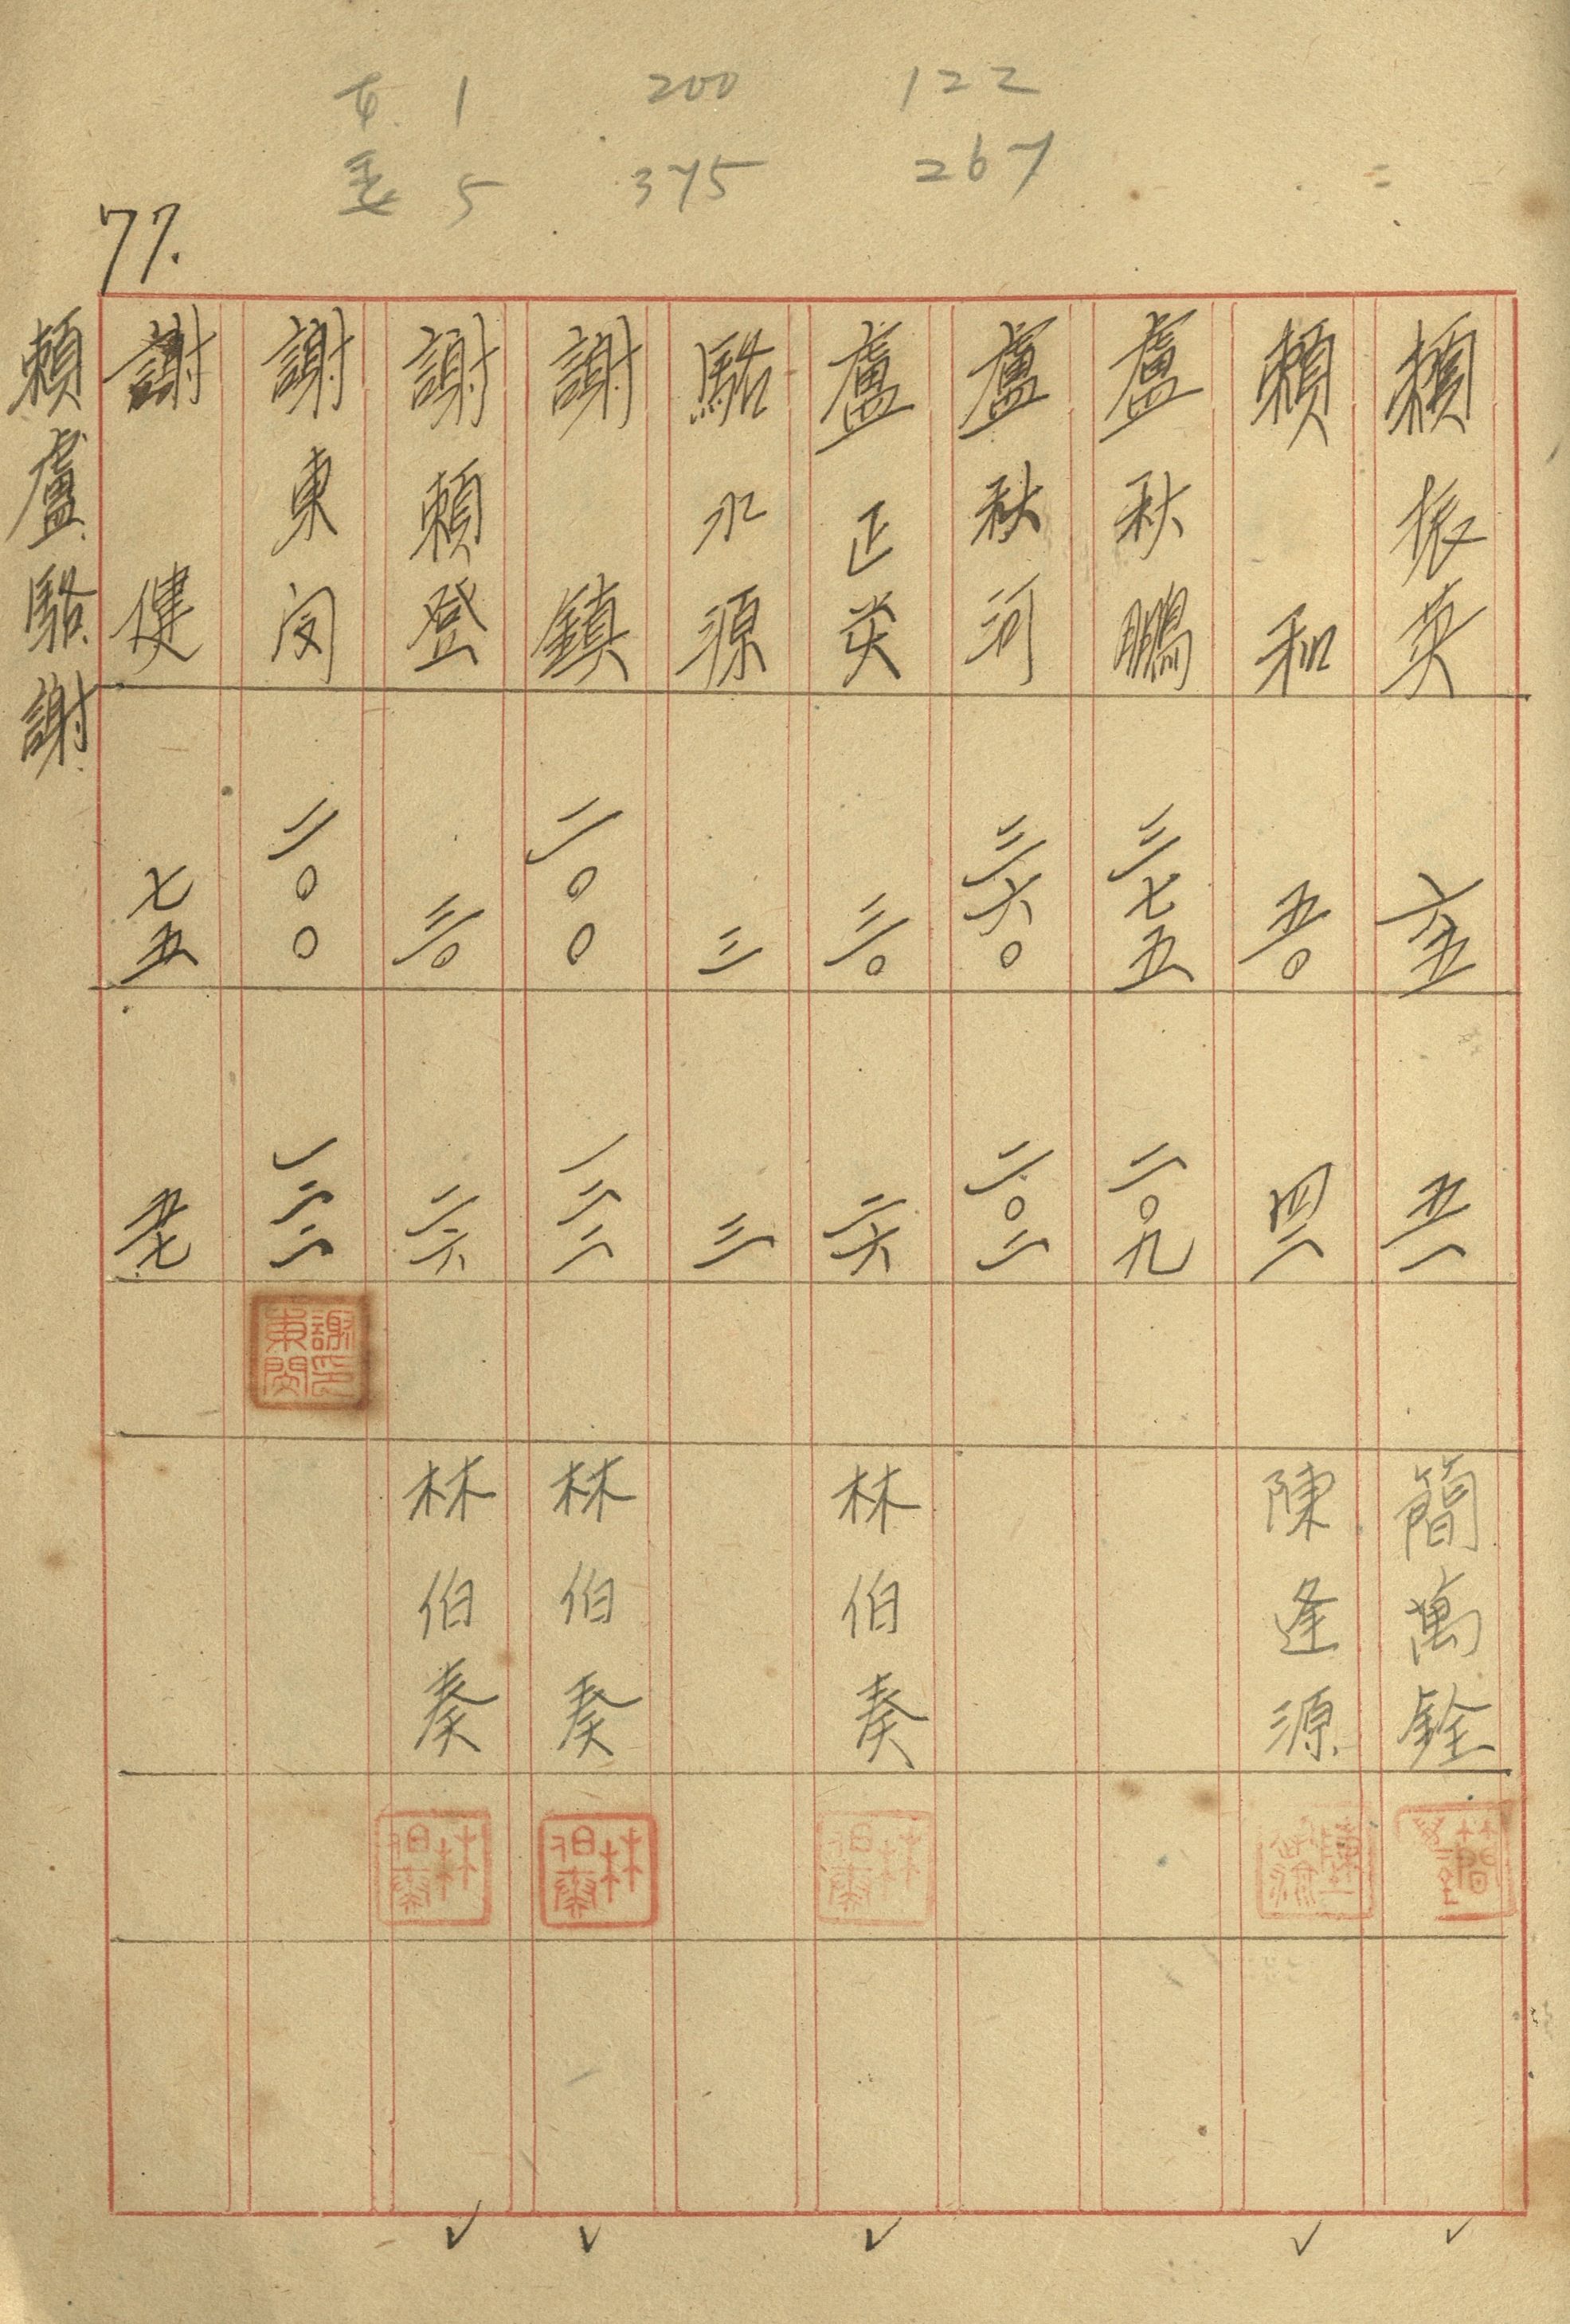 本 1 200 122
委 5 375 267
77.
賴振英 六五 五一 簡萬銓
賴和 五〇 四一 陳逢源
盧秋鵬 三七五 二〇九
盧秋河 三六〇 二〇二
盧正英 三〇 二六 林伯奏
林伯奏
駱水源 三 三
謝鎮 二〇〇 一二二 林伯奏
林伯奏
謝賴登 三〇 二六 林伯奏
林伯奏
謝東閔 二〇〇 一二二
謝東閔印
謝健 七五 五七
賴盧駱謝